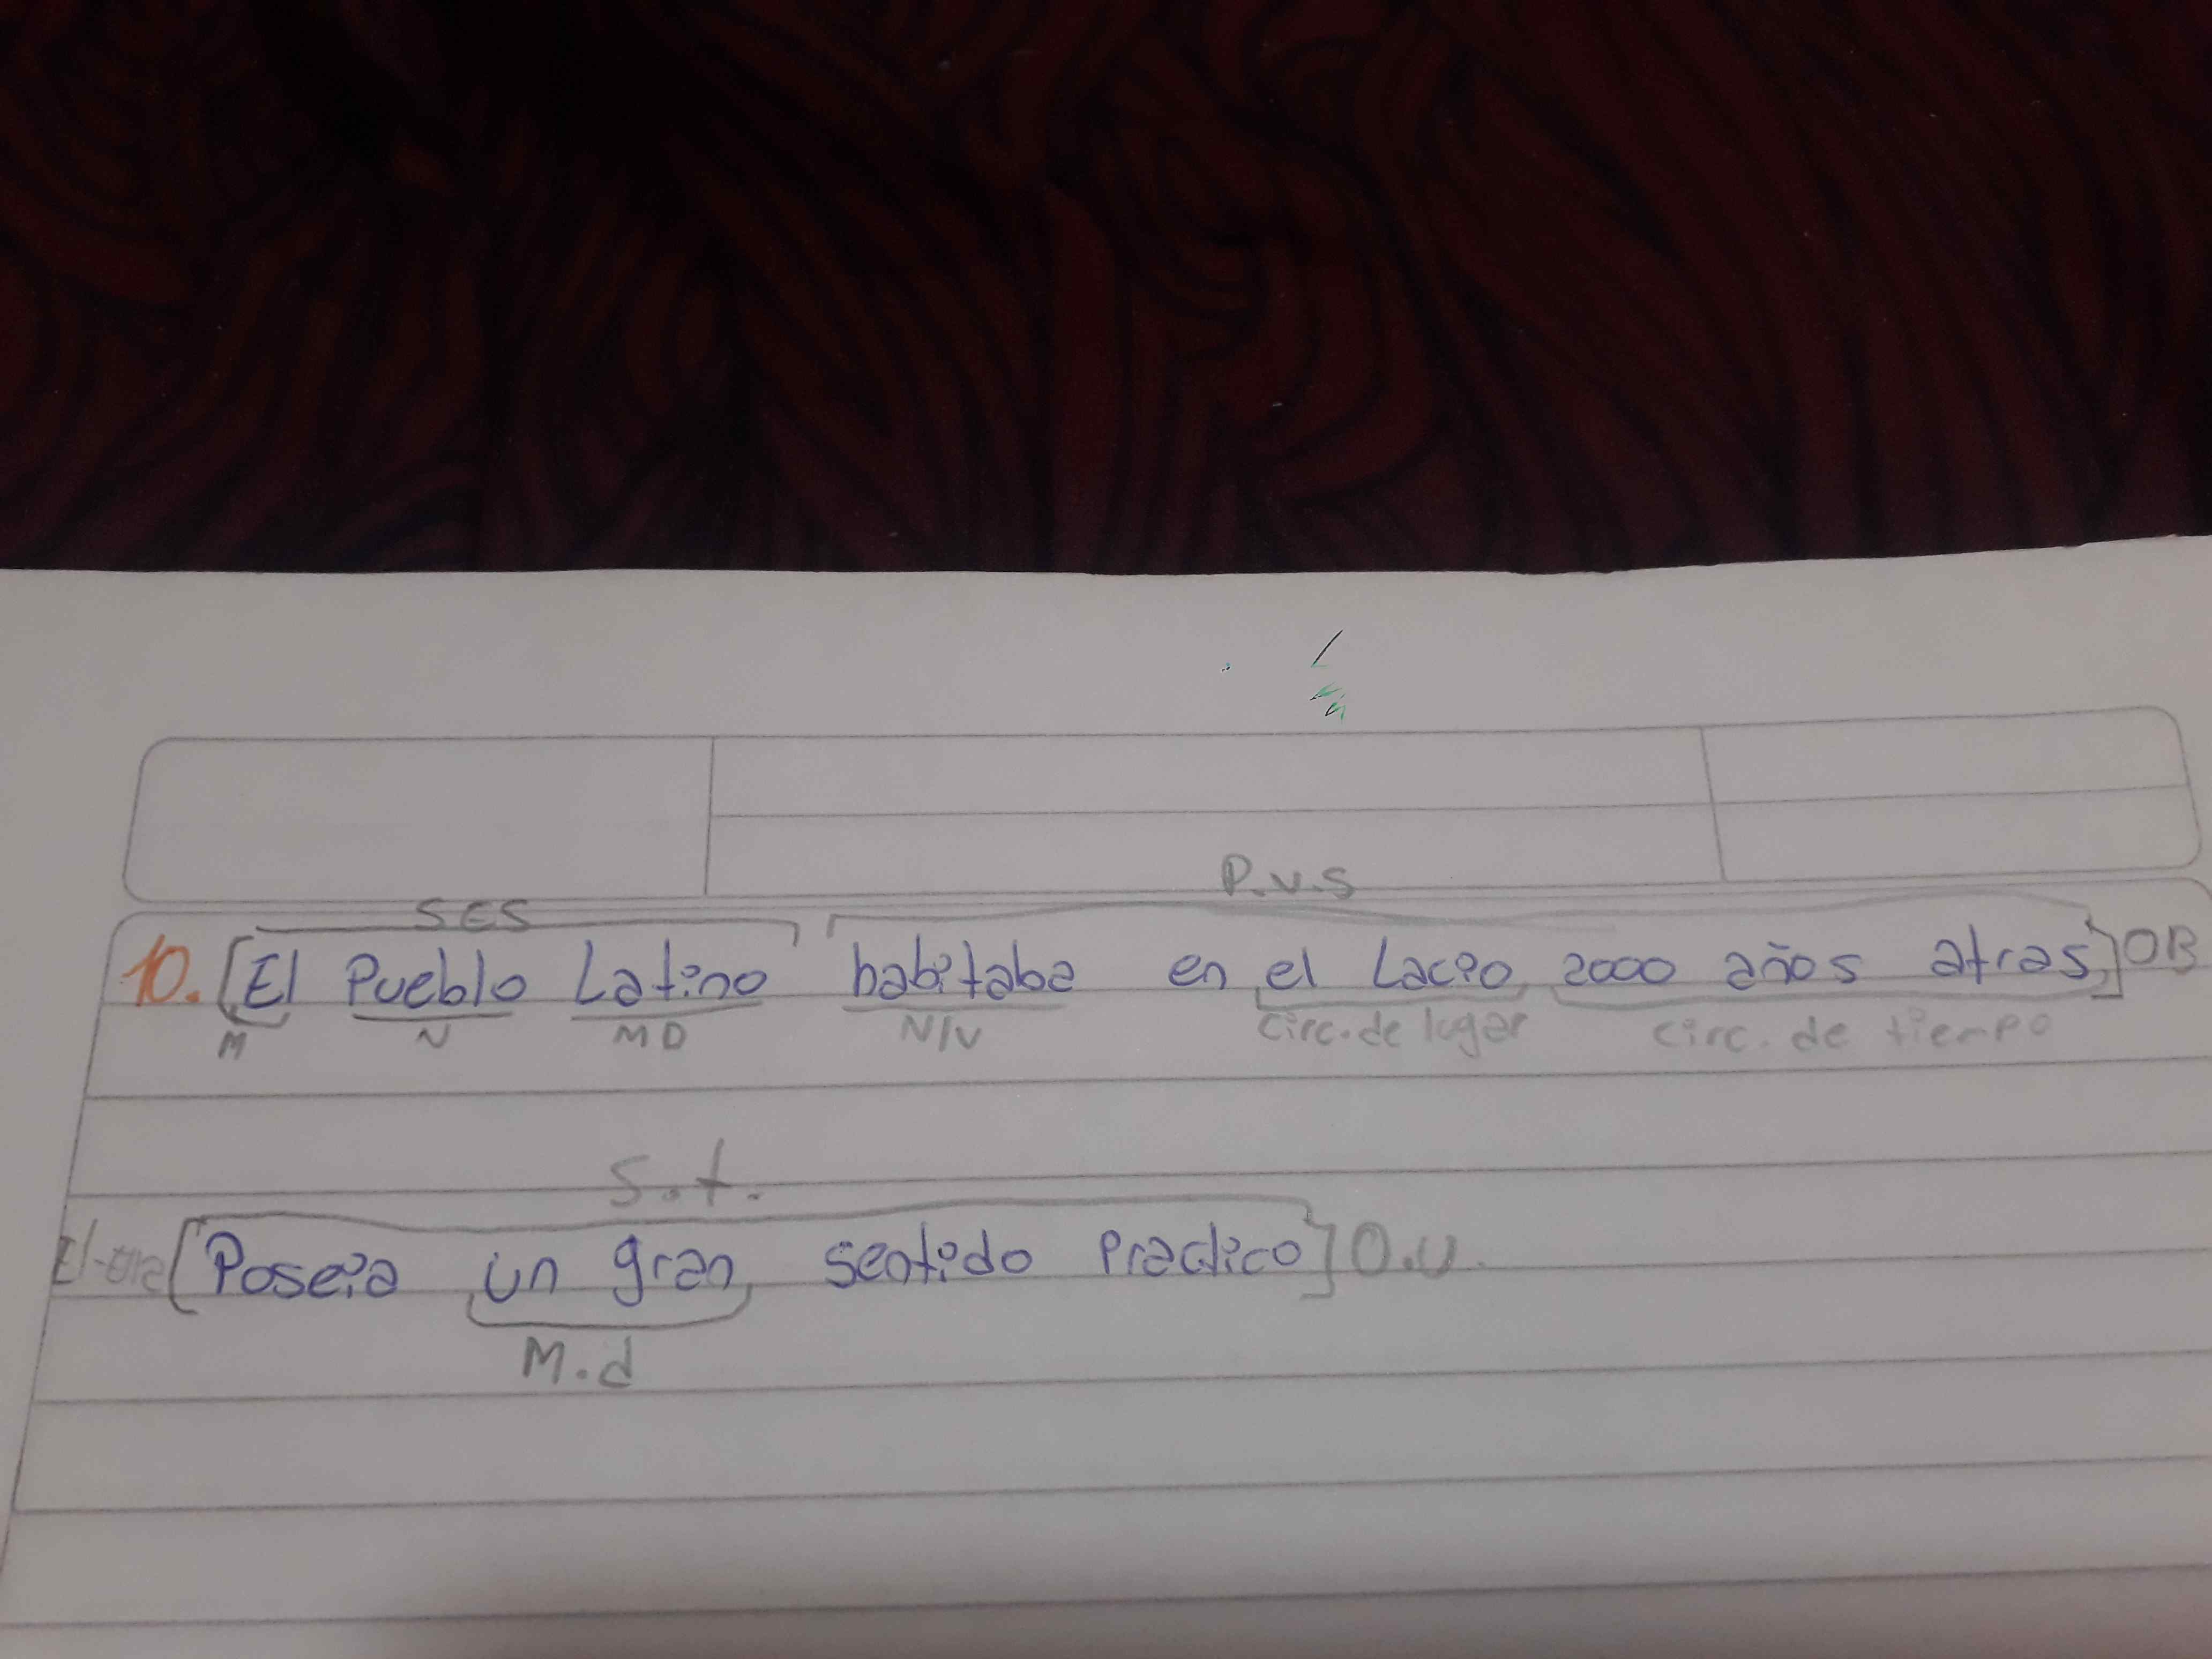 P.V.S
SES
10. [El Pueblo Latino habitaba en el Lacio 2000 años atras] OB
M N MD N/V circ. de lugar circ. de tiempo
S.t.
[Poseia un gran sentido practico] O.U.
M.d